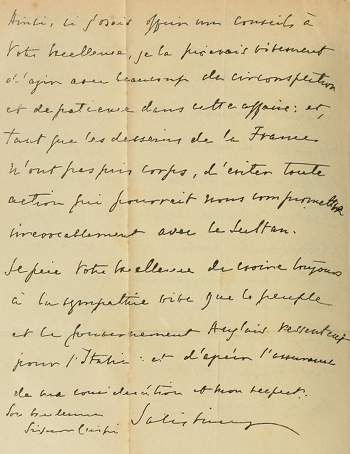 Ainsi, si j'osais offrir mes conseils à
Votre Excellence, je la prierais vivement
d'agir avec beaucoup de circonspection
et de patience dans cette affaire: et,
tant que les desseins de la France
n'ont pas pris corps, d'éviter toute
action qui pourrait nous compromettre
irrévocablement avec le Sultan.
Je prie Votre Excellence de croire toujours
à la sympathie vive que le peuple
et le gouvernement Anglais ressentent
pour l'Italie: et d'agréer l'assurance
de ma considération et mon respect.
Son Excellence
Signor Crispi
Salisbury